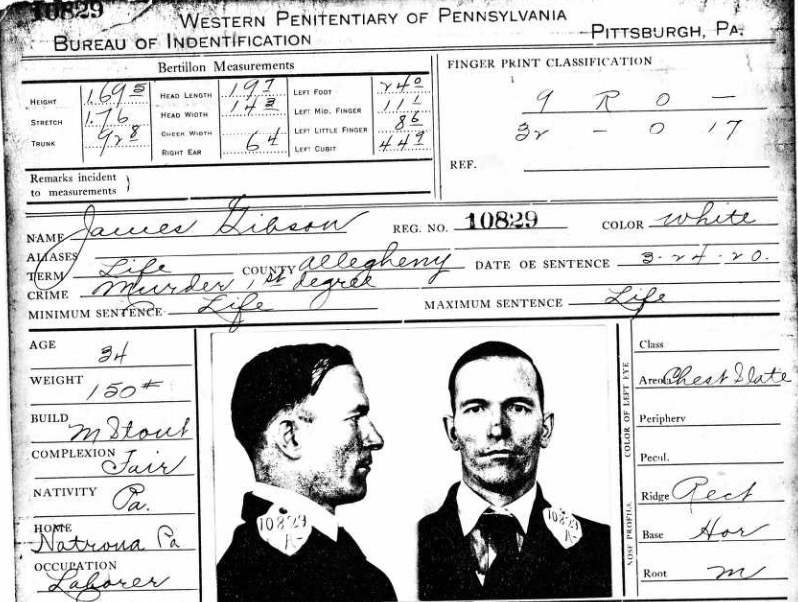 10829
WESTERN PENITENTIARY OF PENNSYLVANIA
BUREAU OF INDENTIFICATION PITTSBURGH, PA.
Bertillon Measurements
HEIGHT 169 5 HEAD LENGTH 19 7 LEFT FOOT 24 0
STRETCH 1.76 HEAD WIDTH 14 3 LEFT MID. FINGER 11 1
TRUNK 92 8 CHEEK WIDTH LEFT LITTLE FINGER 8 6
RIGHT EAR 6 4 LEFT CUBIT 44 9
Remarks incident
to measurements }
FINGER PRINT CLASSIFICATION
9 R O -
32 - 0 17
REF.
NAME James Gibson REG. NO. 10829 COLOR White
ALIASES
TERM Life COUNTY Allegheny DATE OE SENTENCE 3-24-20.
CRIME Murder 1st degree
MINIMUM SENTENCE Life MAXIMUM SENTENCE Life
AGE 34
WEIGHT 150#
BUILD M Stout
COMPLEXION Fair
NATIVITY Pa.
HOME Natrona Pa
OCCUPATION Laborer
10829
A-
10829
A-
COLOR OF LEFT EYE
Class
Areola Chest Slate
Periphery
Pecul.
NOSE PROFILE
Ridge Rect
Base Hor
Root M